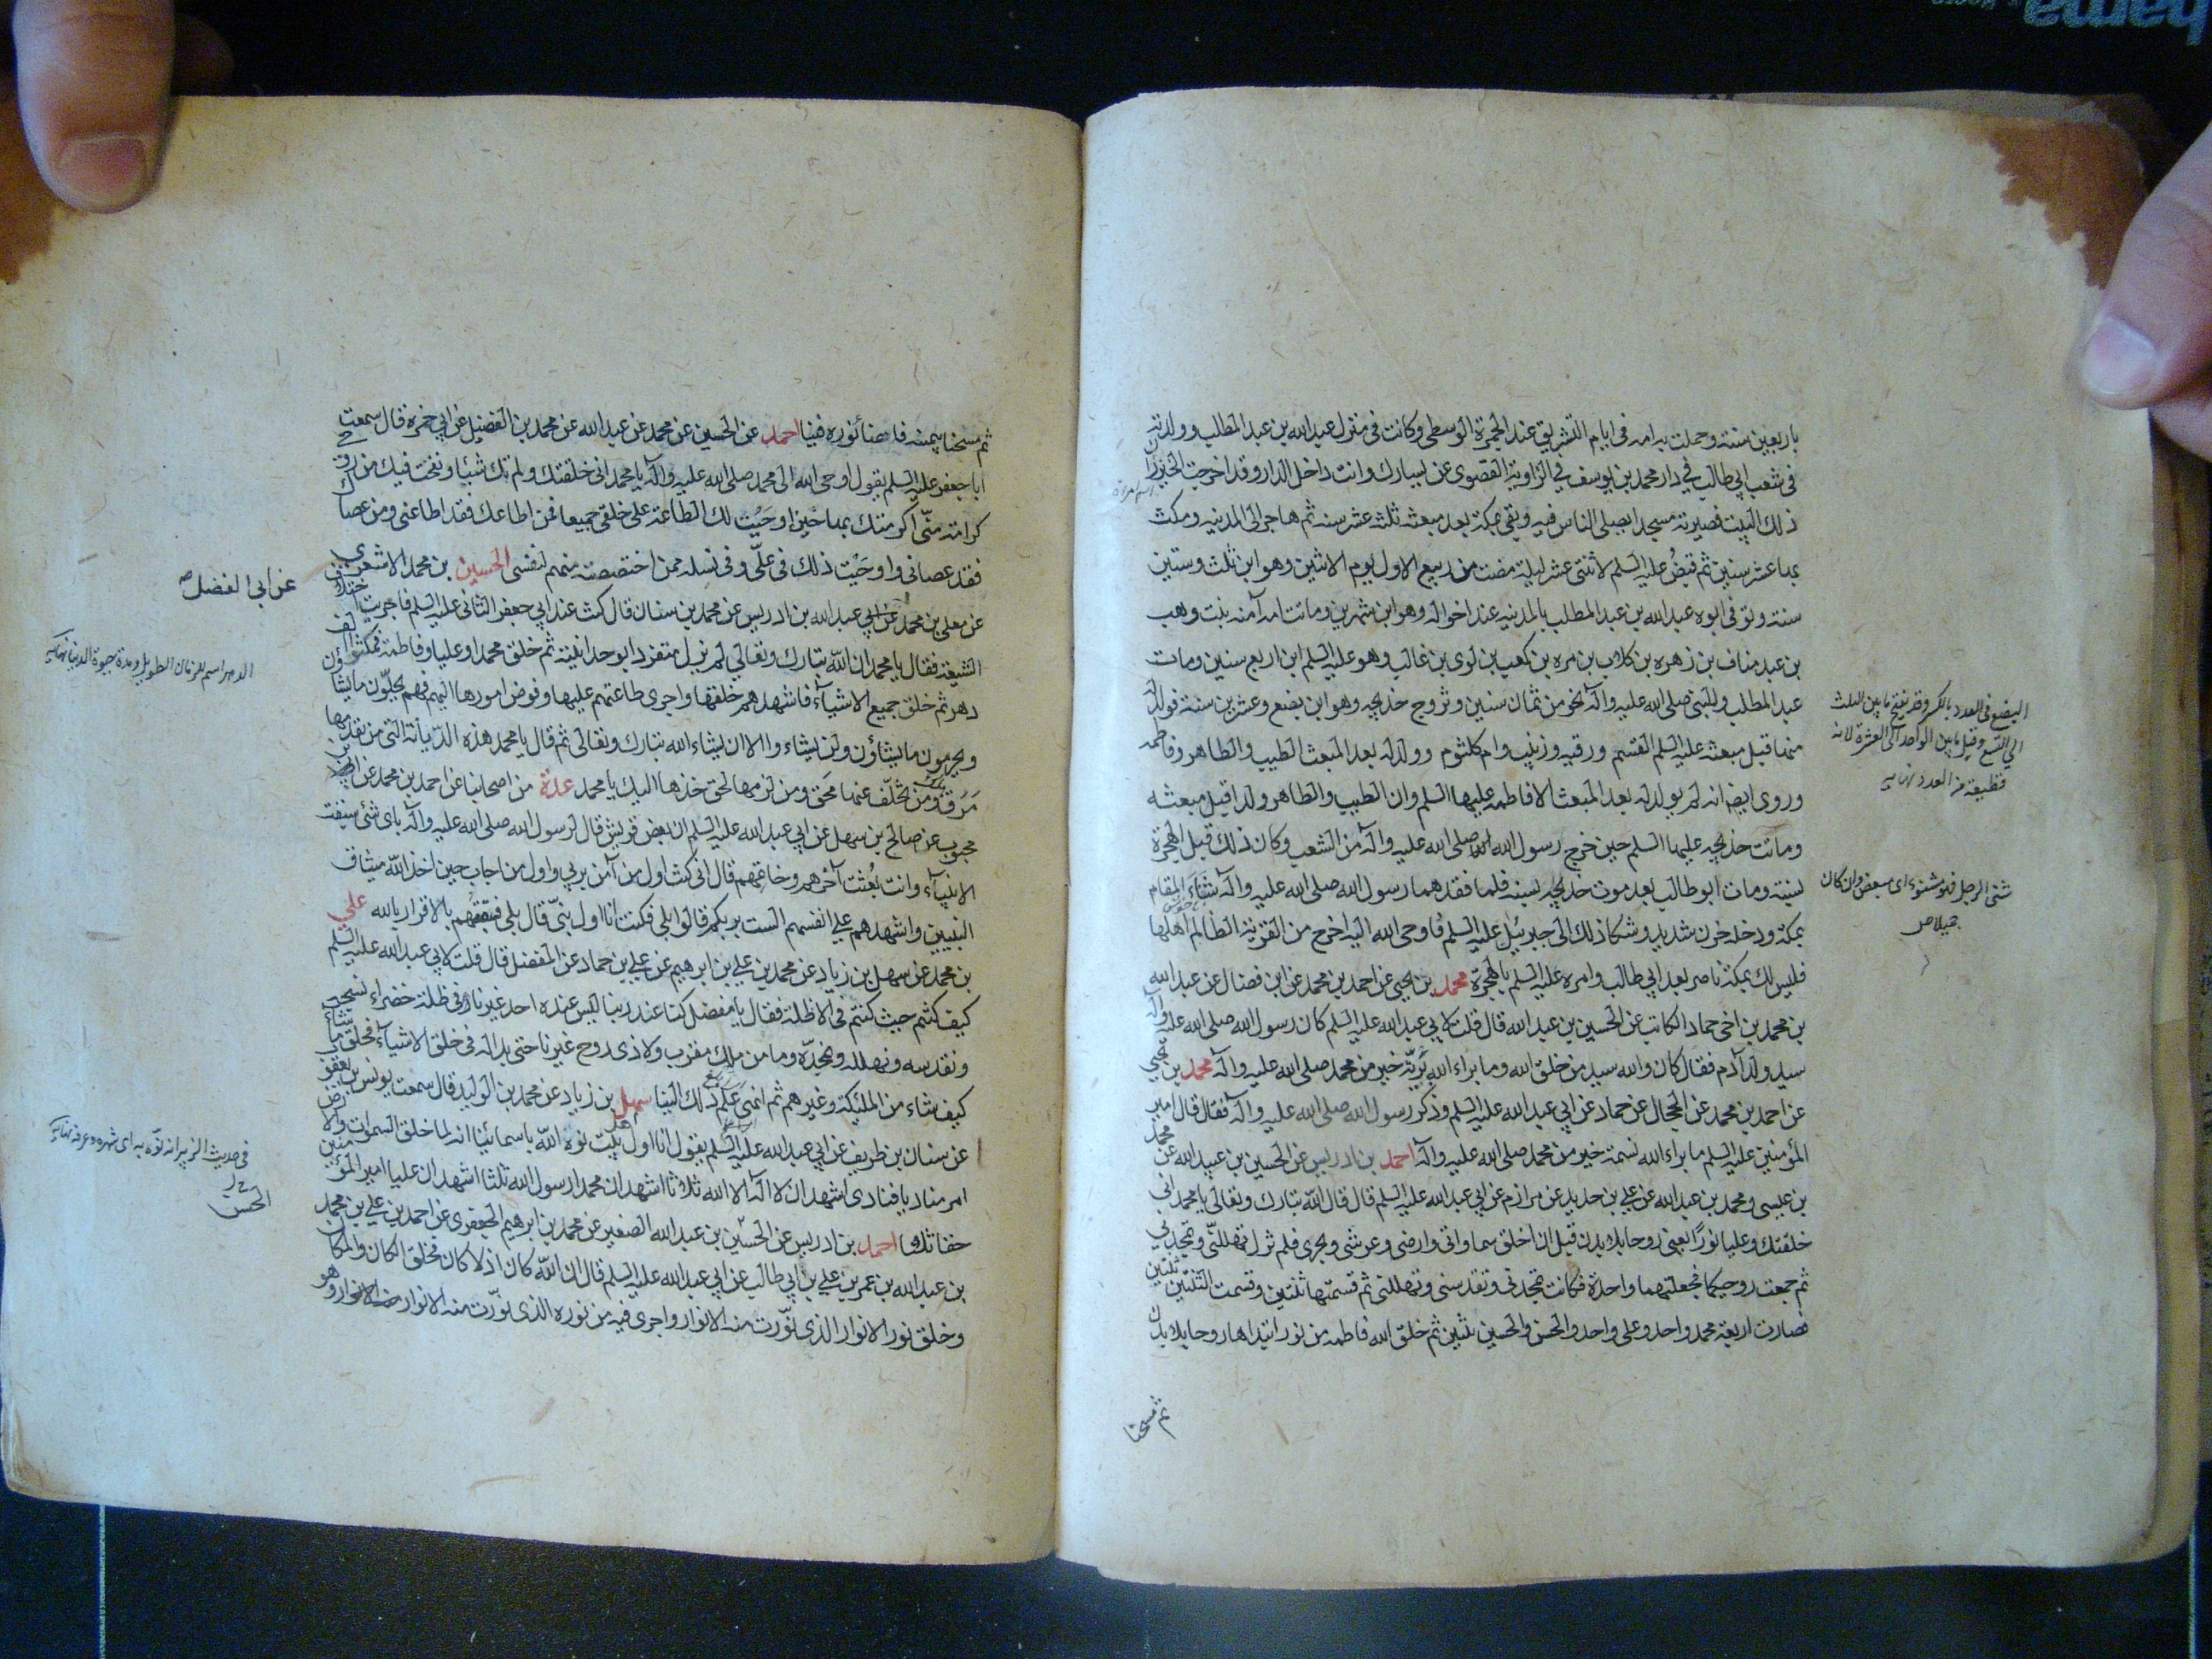 باربعين سنة وحملت به امه في ايام التشريق عند الجمرة الوسطى وكانت في منزل عبد الله بن عبد المطلب وولدته
في شعب ابي طالب في دار محمد بن يوسف في الزاوية القصوى عن يسارك وانت داخل الدار وقد اخرجت الخيزران
ذلك البيت فصيرته مسجدا يصلي الناس فيه وبقي بمكة بعد مبعثه ثلث عشر سنه ثم هاجر الى المدينه ومكث
بها عشر سنين ثم قبض عليه السلم لاثنتى عشر ليلة مضت من ربيع الاول يوم الاثنين وهو ابن ثلث وستين
سنة وتوفى ابوه عبد الله بن عبد المطلب بالمدينه عند اخواله وهو ابن شهرين وماتت امه آمنه بنت وهب
بن عبد مناف بن زهره بن كلاب بن مره بن كعب بن لوى بن غالب وهو عليه السلم ابن اربع سنين ومات
عبد المطلب وللنبى صلى الله عليه واله نحو من ثمان سنين وتزوج خديجه وهو ابن بضع وعشرين سنة فولد له
منها قبل مبعثه عليه السلم القسم ورقيه وزينب وام كلثوم وولد له بعد المبعث الطيب والطاهر وفاطمه
وروى ايضا انه لم يولد له بعد المبعث الا فاطمه عليها السلم وان الطيب والطاهر ولدا قبل مبعثه
وماتت خديجه عليها السلم حين خرج رسول الله صلى الله عليه واله من الشعب وكان ذلك قبل الهجرة
بسنة ومات ابو طالب بعد موت خديجه بسنه فلما فقدهما رسول الله صلى الله عليه واله شنأ المقام
بمكة ودخله حزن شديد وشكا ذلك الى جبرئيل عليه السلم فاوحى الله اليه اخرج من القرية الظالم اهلها
فليس لك بمكة ناصر بعد ابي طالب وامره عليه السلم بالهجرة محمد بن يحيى عن احمد بن محمد عن ابن فضال عن عبد الله
بن محمد بن اخى حماد الكاتب عن الحسين بن عبد الله قال قلت لابي عبد الله عليه السلم كان رسول الله صلى الله عليه واله
سيد ولد آدم فقال كان والله سيد من خلق الله وما براء الله برية خير من محمد صلى الله عليه واله محمد بن يحيى
عن احمد بن محمد عن الحجال عن حماد عن ابي عبد الله عليه السلم وذكر رسول الله صلى الله عليه واله فقال قال امير
المؤمنين عليه السلم ما براء الله نسمة خير من محمد صلى الله عليه واله احمد بن ادريس عن الحسين بن عبيد الله عن محمد
بن عيسى ومحمد بن عبد الله عن علي بن حديد عن مرازم عن ابي عبد الله عليه السلم قال قال الله تبارك وتعالى يا محمد انى
خلقتك وعليا نورا يعنى روحا بلا بدن قبل ان اخلق سماواتى وارضى وعرشى وبحرى فلم تزل تهللنى وتمجدنى
ثم جمعت روحيكما فجعلتهما واحدة فكانت تمجدنى وتقدسنى وتهللنى ثم قسمتها ثنتين وقسمت الثنتين ثنتين
فصارت اربعة محمد واحد وعلى واحد والحسن والحسين ثنتين ثم خلق الله فاطمه من نور ابتداها روحا بلا بدن
ثم مسحنا
البضع فى العدد بالكسر وقد يفتح ما بين الثلث
الى التسع وقيل ما بين الواحد الى العشرة لانه
قطعة من العدد نهايه
شنئ الرجل فهو مشنوء اى مبغض وان كان
جميلا ص
ثم مسحنا بيمينه فافضأ نوره فينا احمد عن الحسين عن محمد عن عبد الله عن محمد بن الفضيل عن ابي حمزه قال سمعت
ابا جعفر عليه السلم يقول اوحى الله الى محمد صلى الله عليه واله يا محمد انى خلقتك ولم تك شيئا ونفخت فيك من روحى
كرامة منى اكرمتك بها حين اوجبت لك الطاعة على خلقى جميعا فمن اطاعك فقد اطاعنى ومن عصاك
فقد عصانى واوجبت ذلك فى على وفى نسله ممن اختصصته منهم لنفسى الحسين بن محمد الاشعرى
عن معلى بن محمد عن ابي عبد الله بن ادريس عن محمد بن سنان قال كنت عند ابي جعفر الثانى عليه السلم فاجريت اختلاف
الشيعة فقال يا محمد ان الله تبارك وتعالى لم يزل متفردا بوحدانيته ثم خلق محمدا وعليا وفاطمة فمكثوا الف
دهر ثم خلق جميع الاشيآء فاشهدهم خلقها واجرى طاعتهم عليها وفوض امورها اليهم فهم يحلون ما يشاؤن
ويحرمون ما يشاؤن ولن يشاءوا الا ان يشاء الله تبارك وتعالى ثم قال يا محمد هذه الديانة التى من تقدمها
مرق ومن تخلف عنها محق ومن لزمها لحق خذها اليك يا محمد عدة من اصحابنا عن احمد بن محمد عن ابن
محبوب عن صالح بن سهل عن ابي عبد الله عليه السلم ان بعض قريش قال لرسول الله صلى الله عليه واله باى شئ سبقت
الانبيآء وانت بعثت آخرهم وخاتمهم قال انى كنت اول من آمن بربي واول من اجاب حين اخذ الله ميثاق
النبيين واشهدهم على انفسهم الست بربكم قالوا بلى فكنت انا اول نبى قال بلى فسبقتهم بالاقرار بالله على
بن محمد عن سهل بن زياد عن محمد بن علي بن ابرهيم عن علي بن حماد عن المفضل قال قلت لابي عبد الله عليه السلم
كيف كنتم حيث كنتم فى الاظلة فقال يا مفضل كنا عند ربنا ليس عنده احد غيرنا فى ظلة خضراء نسبحه
ونقدسه ونهلله ونمجده وما من ملك مقرب ولا ذى روح غيرنا حتى بدا له فى خلق الاشيآء فخلق ما شاء
كيف شاء من الملئكة وغيرهم ثم انهى علم ذلك الينا سهل بن زياد عن محمد بن الوليد قال سمعت يونس بن يعقوب
عن سنان بن طريف عن ابي عبد الله عليه السلم يقول انا اول بيت نوه الله باسمائنا انه لما خلق السموات والارض
امر مناديا فنادى اشهد ان لا اله الا الله ثلاثا اشهد ان محمدا رسول الله ثلثا اشهد ان عليا امير المؤمنين
حقا ثلثا احمد بن ادريس عن الحسين بن عبد الله الصغير عن محمد بن ابرهيم الجعفرى عن احمد بن علي بن محمد
بن عبد الله بن عمر بن علي بن ابي طالب عن ابي عبد الله عليه السلم قال ان الله كان اذ لا كان فخلق الكان والمكان
وخلق نور الانوار الذى نورت منه الانوار واجرى فيه من نوره الذى نورت منه الانوار وهو
عن ابي الفضل
الدهر اسم للزمان الطويل ومدة حيوة الدنيا نهايه
فى حديث الزبير انه نوه به اى شهره وعرفه نهايه
الحسن